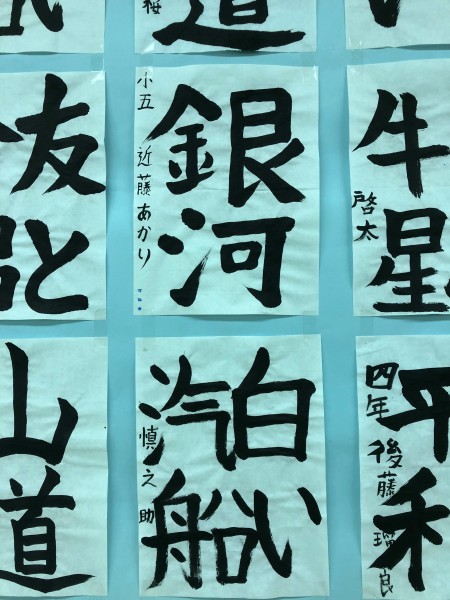 道
友と
銀河
小五 近藤あかり
牛星
啓太
山道
白い
汽船
慎之助
平和
四年 後藤